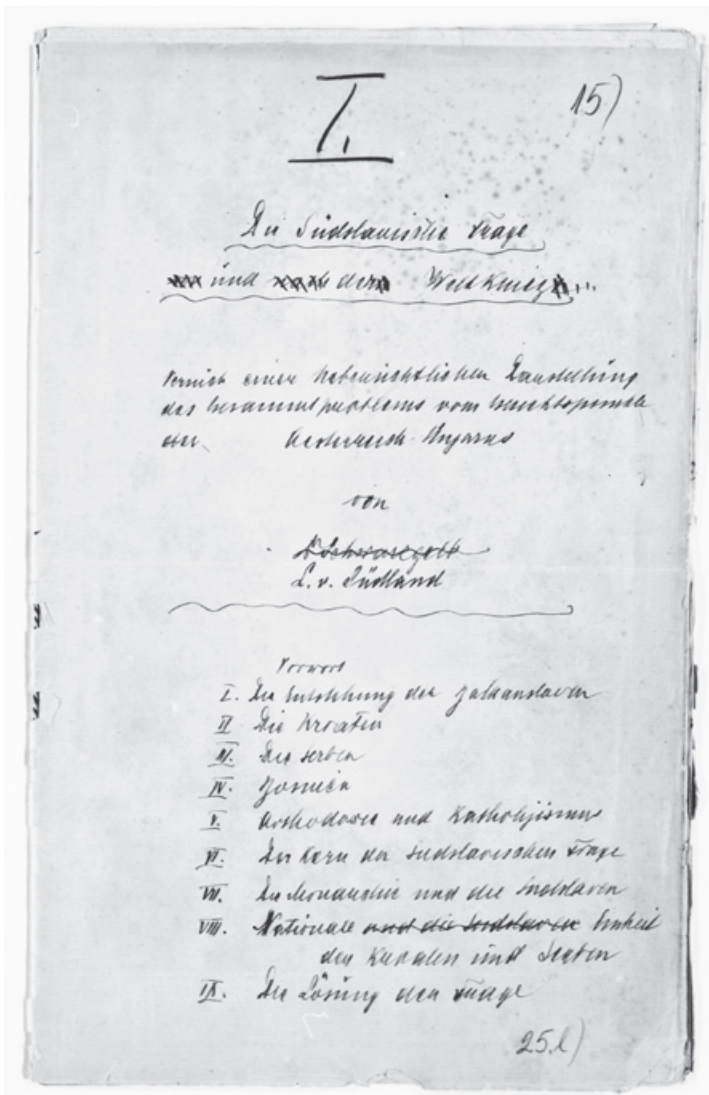 I.
15)
Die Südslavische Frage
und der Weltkrieg
Versuch einer uebersichtlichen Darstellung
des Gesammtproblems vom Gesichtspunkte
Oesterreich-Ungarns
von
L. v. Südland
Vorwort
I. Die Entstehung der Balkanslaven
II Die Kroaten
III. Die Serben
IV. Bosnien
V. Orthodoxie und Katholizismus
VI. Der Kern der südslavischen Frage
VII. Die Monarchie und die Südslaven
VIII. Nationale und die Südslaven Einheit
der Kroaten und Serben
IX. Die Lösung der Frage
25.l)